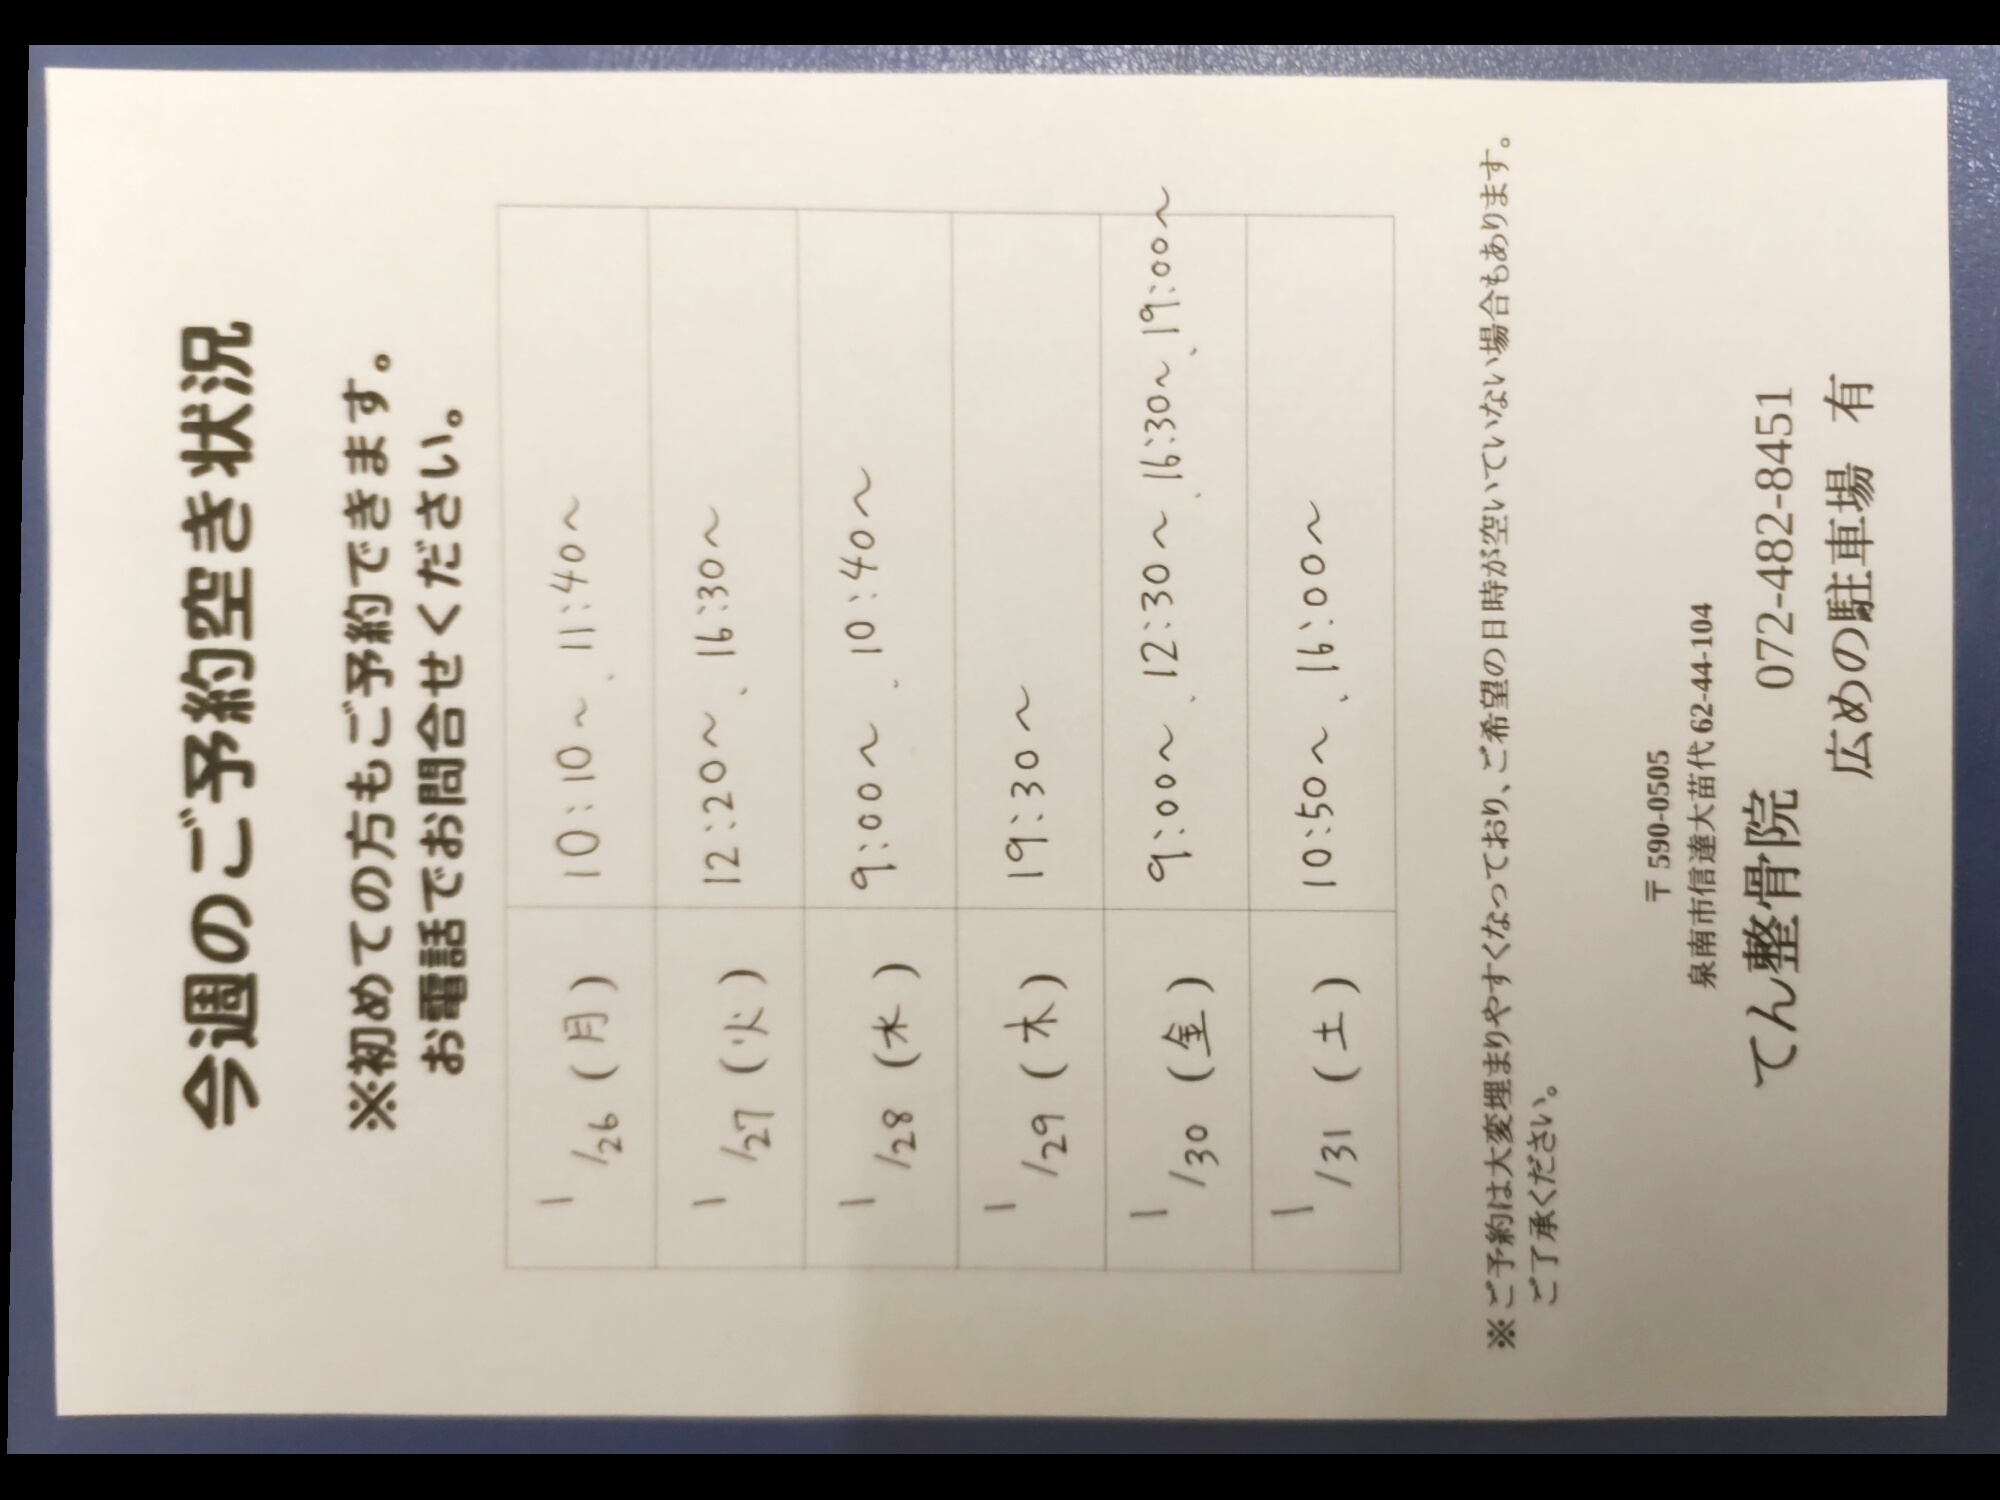 今週のご予約空き状況
※初めての方もご予約できます。
お電話でお問合せください。
1/26 (月) 10:10～、11:40～
1/27 (火) 12:20～、16:30～
1/28 (水) 9:00～、10:40～
1/29 (木) 19:30～
1/30 (金) 9:00～、12:30～、16:30～、19:00～
1/31 (土) 10:50～、16:00～
※ご予約は大変埋まりやすくなっており、ご希望の日時が空いていない場合もあります。
ご了承ください。
〒590-0505
泉南市信達大苗代62-44-104
てん整骨院 072-482-8451
広めの駐車場 有